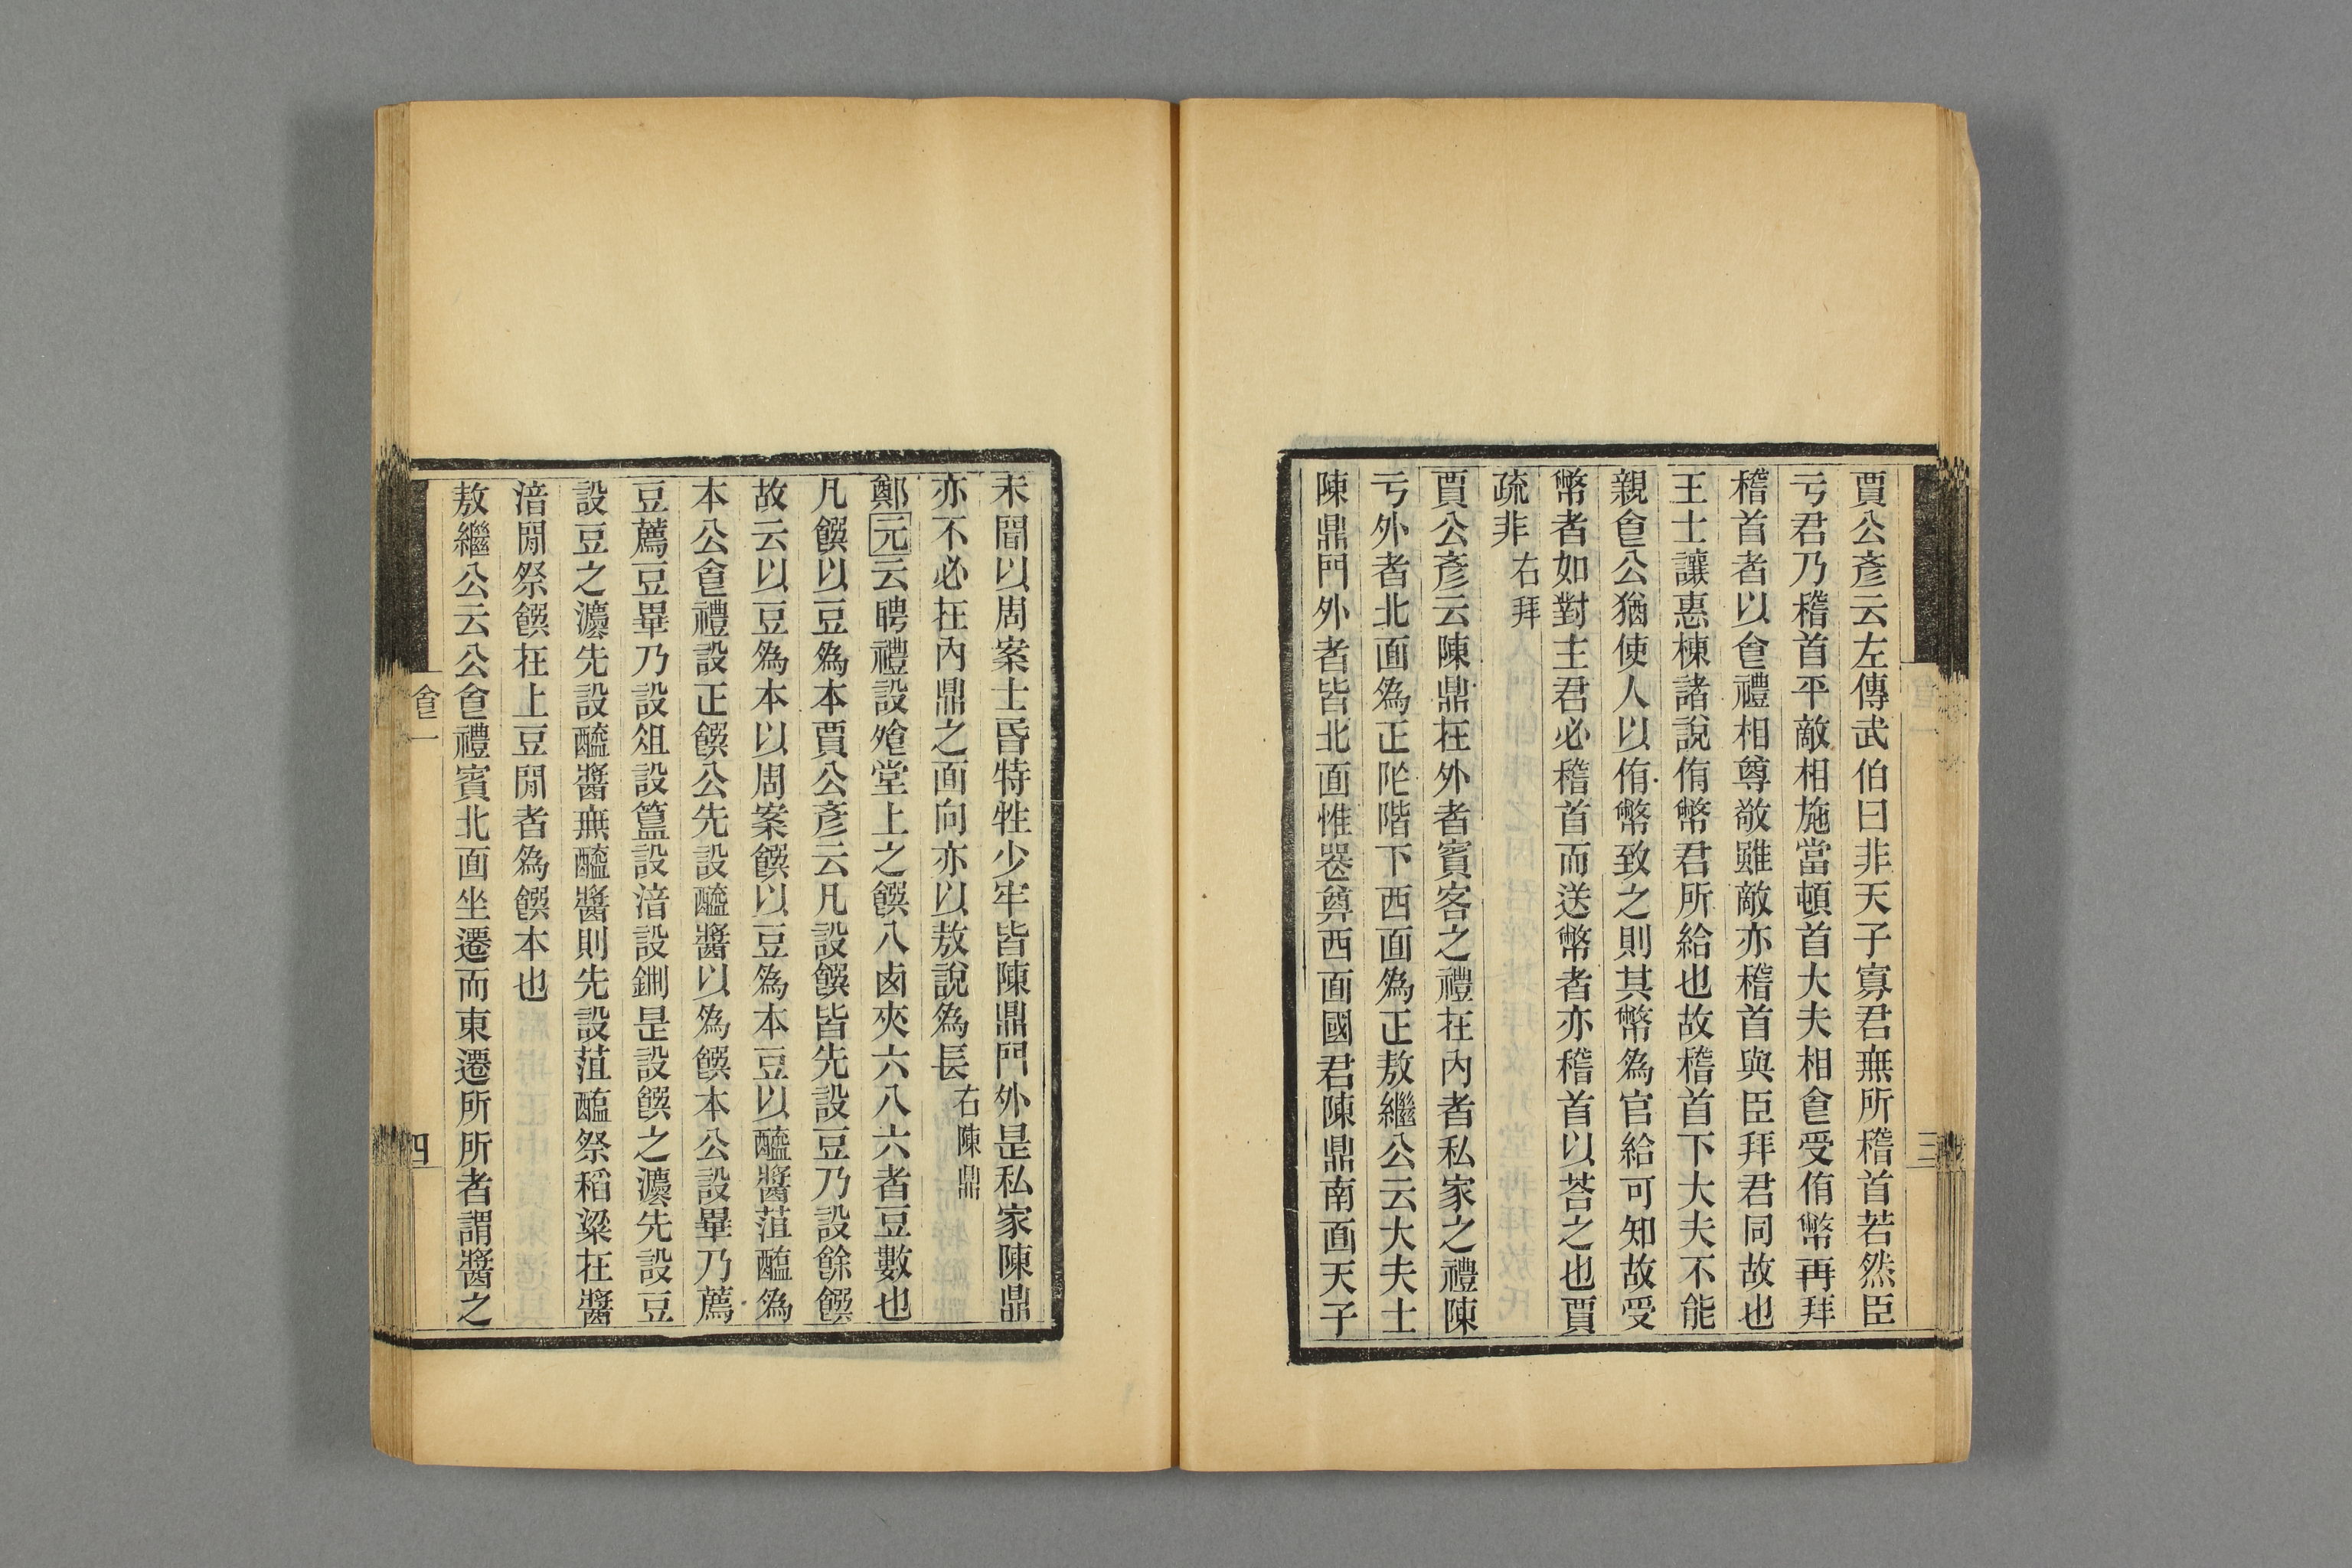 賈公彥云左傳武伯曰非天子寡君無所稽首若然臣
亏君乃稽首平敵相施當頓首大夫相食受侑幣再拜
稽首者以食禮相尊敬雖敵亦稽首與臣拜君同故也
王士讓惠棟諸說侑幣君所給也故稽首下大夫不能
親食公猶使人以侑幣致之則其幣為官給可知故受
幣者如對主君必稽首而送幣者亦稽首以荅之也賈
疏非 右拜
賈公彥云陳鼎在外者賓客之禮在內者私家之禮陳
亏外者北面為正阼階下西面為正敖繼公云大夫士
陳鼎門外者皆北面惟喪奠西面國君陳鼎南面天子
三
未聞以周案士昏特牲少牢皆陳鼎門外是私家陳鼎
亦不必在內鼎之面向亦以敖說為長 右陳鼎
鄭元云聘禮設飧堂上之饌八卤夾六八六者豆數也
凡饌以豆為本賈公彥云凡設饌皆先設豆乃設餘饌
故云以豆為本以周案饌以豆為本豆以醯醬菹醢為
本公食禮設正饌公先設醯醬以為饌本公設畢乃薦
豆薦豆畢乃設俎設簋設湆設鉶是設饌之灋先設豆
設豆之灋先設醯醬無醯醬則先設菹醢祭稻粱在醬
湆閒祭饌在上豆閒者為饌本也
敖繼公云公食禮賓北面坐遷而東遷所所者謂醬之
食一
四